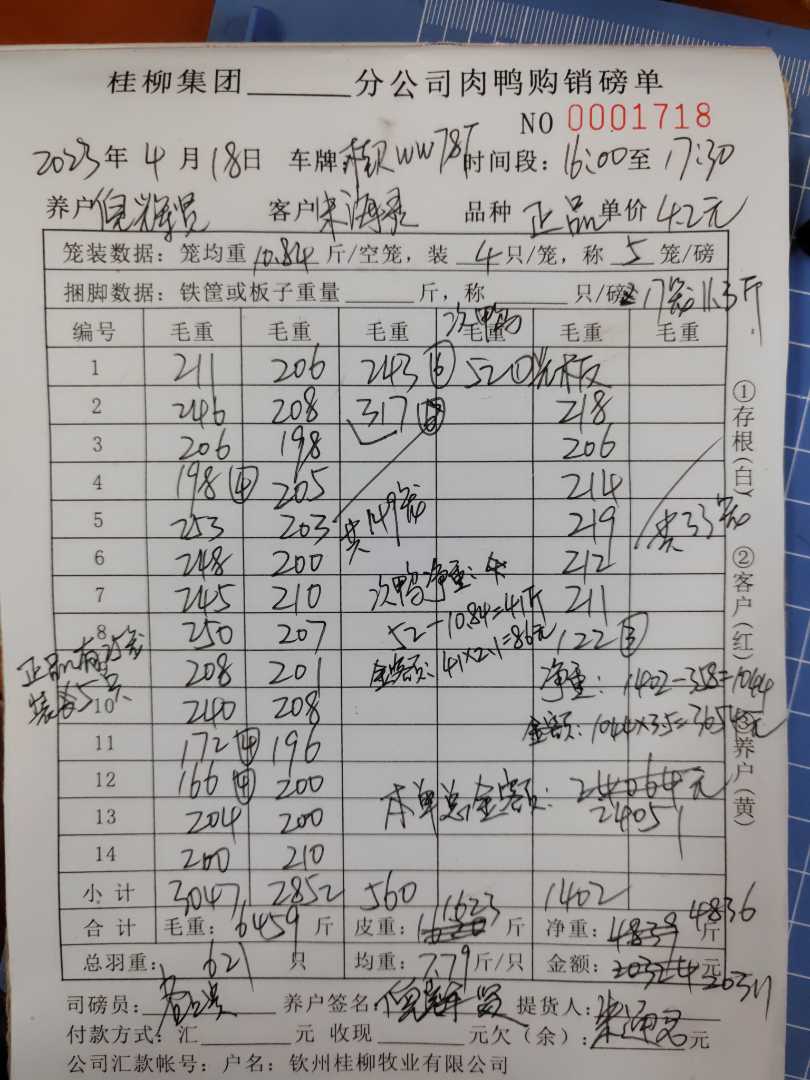 桂柳集团______分公司肉鸭购销磅单
NO 0001718
2023年 4 月 18日 车牌: WW78T 时间段: 16:00至 17:30
养户 倪 贤 客户 宋海 品种 正品 单价 4.2元
笼装数据: 笼均重 10.84 斤/空笼, 装 4 只/笼, 称 5 笼/磅
捆脚数据: 铁筐或板子重量______斤, 称______只/磅 17 11.3斤
编号 毛重 毛重 毛重 毛重 毛重 毛重
次鸭
1 211 206 243 ⑥ 52 ① 光板
2 246 208 317 218
3 206 198 206
4 198 ④ 205 214
5 253 203 共149笼 219 共33笼
6 248 200 212
7 245 210 次鸭净重: 211
8 250 207 52-10.84=41斤 122 ③
208 201 金额: 41×2.1=86元
正品有 25笼
装 5只
10 240 208 净重: 1402-358=1044
11 172 ④ 196 金额: 1044×3.5=3654元
12 166 ④ 200 本单总金额: 24064元
13 204 200 24051
14 200 210
小计 3047 2852 560 1402
合计 毛重: 6459 斤 皮重: 1623 斤 净重: 4839 斤 4836
总羽重: 621 只 均重: 7.79斤/只 金额: 20324元 20311
司磅员: 养户签名: 倪 贤 提货人: 宋海
付款方式: 汇______元 收现______元欠(余): 元
公司汇款帐号: 户名: 钦州桂柳牧业有限公司
①存根(白) ②客户(红) ③养户(黄)